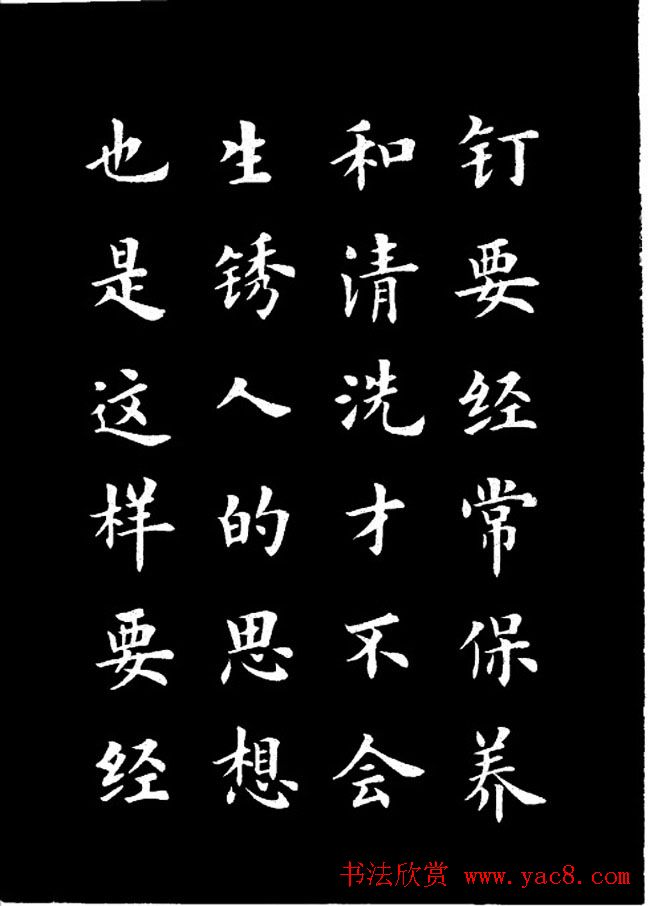 钉要经常保养
和清洗才不会
生锈人的思想
也是这样要经
书法欣赏 www.yac8.com